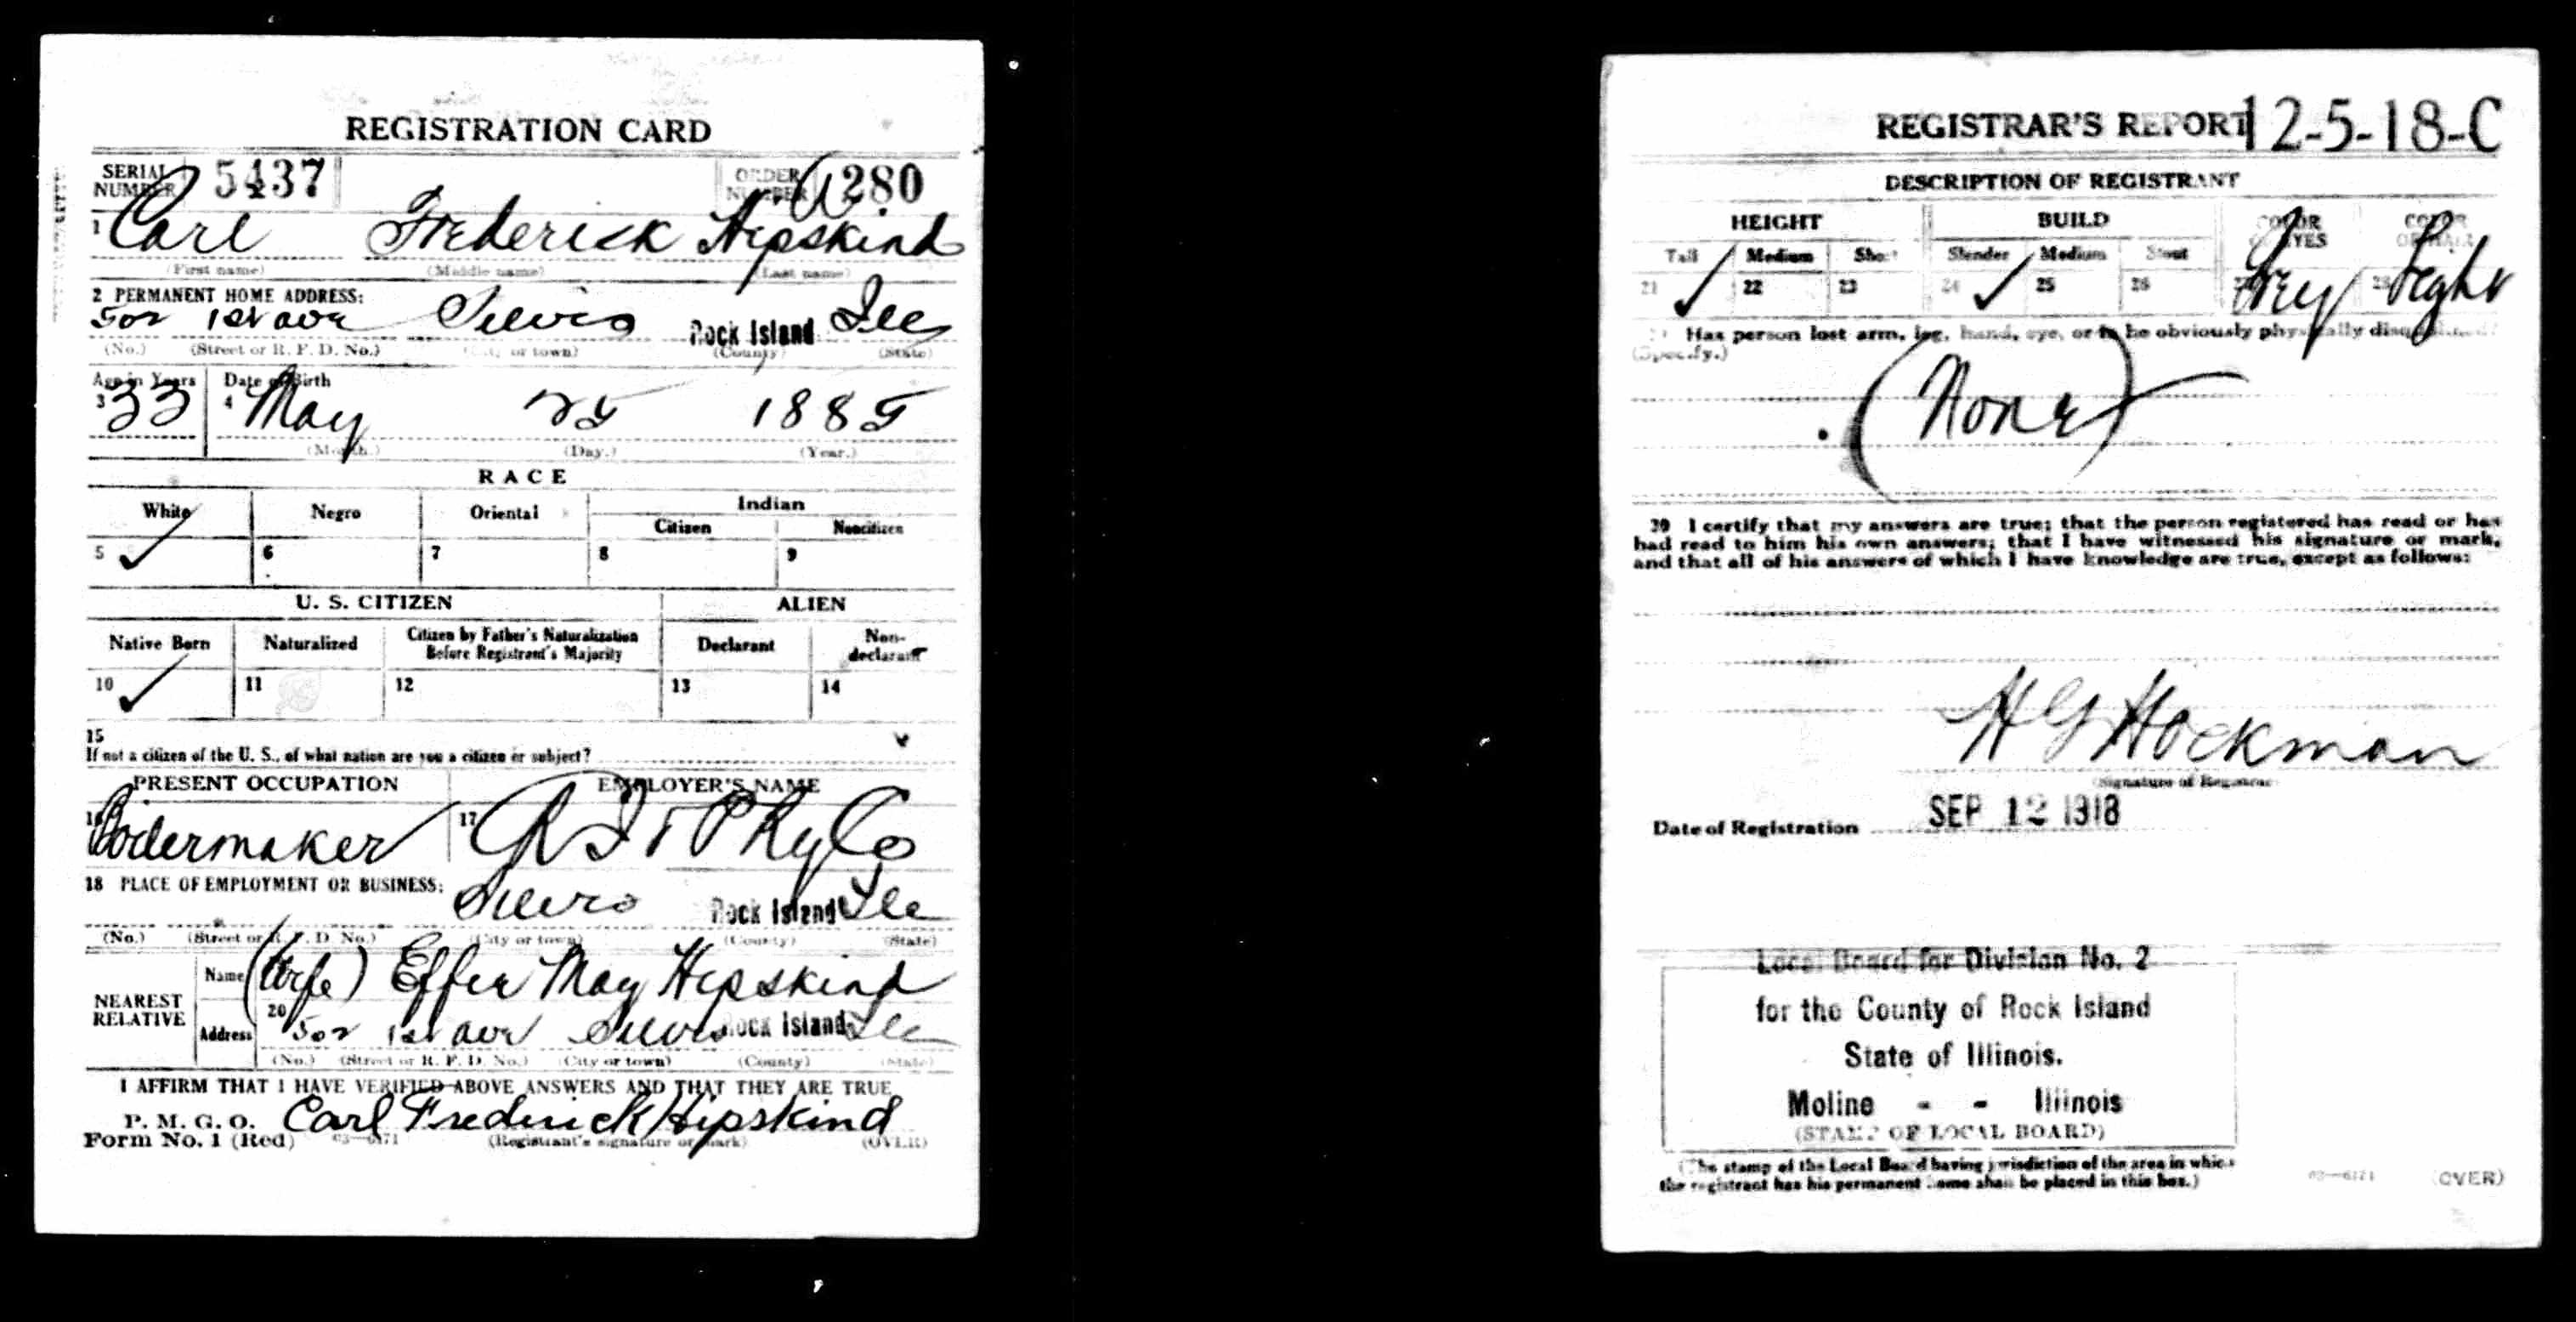 REGISTRATION CARD
SERIAL NUMBER 5437 ORDER NUMBER 280
1 Carl Frederick Hepskind
(First name) (Middle name) (Last name)
2 PERMANENT HOME ADDRESS:
502 1st ave Silvis Rock Island Ill
(No.) (Street or R. F. D. No.) (City or town) (County) (State)
Age in Years Date of Birth
3 33 4 May 25 1885
(Month.) (Day.) (Year.)
RACE
White Negro Oriental Indian
Citizen Noncitizen
5 ✓ 6 7 8 9
U. S. CITIZEN ALIEN
Native Born Naturalized Citizen by Father's Naturalization Before Registrant's Majority Declarant Non-declarant
10 ✓ 11 12 13 14
15
If not a citizen of the U. S., of what nation are you a citizen or subject?
PRESENT OCCUPATION EMPLOYER'S NAME
16 Boilermaker 17 C R I & P Ry Co
18 PLACE OF EMPLOYMENT OR BUSINESS:
Silvis Rock Island Ill
(No.) (Street or R. F. D. No.) (City or town) (County) (State)
NEAREST RELATIVE Name (Wife) Effie May Hepskind
Address 20 502 1st ave Silvis Rock Island Ill
(No.) (Street or R. F. D. No.) (City or town) (County) (State)
I AFFIRM THAT I HAVE VERIFIED ABOVE ANSWERS AND THAT THEY ARE TRUE
P. M. G. O. Carl Frederick Hipskind
Form No. 1 (Red) 03—6171 (Registrant's signature or mark) (OVER)
REGISTRAR'S REPORT 12-5-18-C
DESCRIPTION OF REGISTRANT
HEIGHT BUILD COLOR OF EYES COLOR OF HAIR
Tall Medium Short Slender Medium Stout
21 ✓ 22 23 24 ✓ 25 26 27 Grey 28 Light
29 Has person lost arm, leg, hand, eye, or is he obviously physically disqualified?
(Specify.)
(None)
30 I certify that my answers are true; that the person registered has read or has
had read to him his own answers; that I have witnessed his signature or mark,
and that all of his answers of which I have knowledge are true, except as follows:
H G Hockman
(Signature of Registrar)
Date of Registration SEP 12 1918
Local Board for Division No. 2
for the County of Rock Island
State of Illinois.
Moline - - Illinois
(STAMP OF LOCAL BOARD)
(The stamp of the Local Board having jurisdiction of the area in which
the registrant has his permanent home shall be placed in this box.)
03—6171 (OVER)